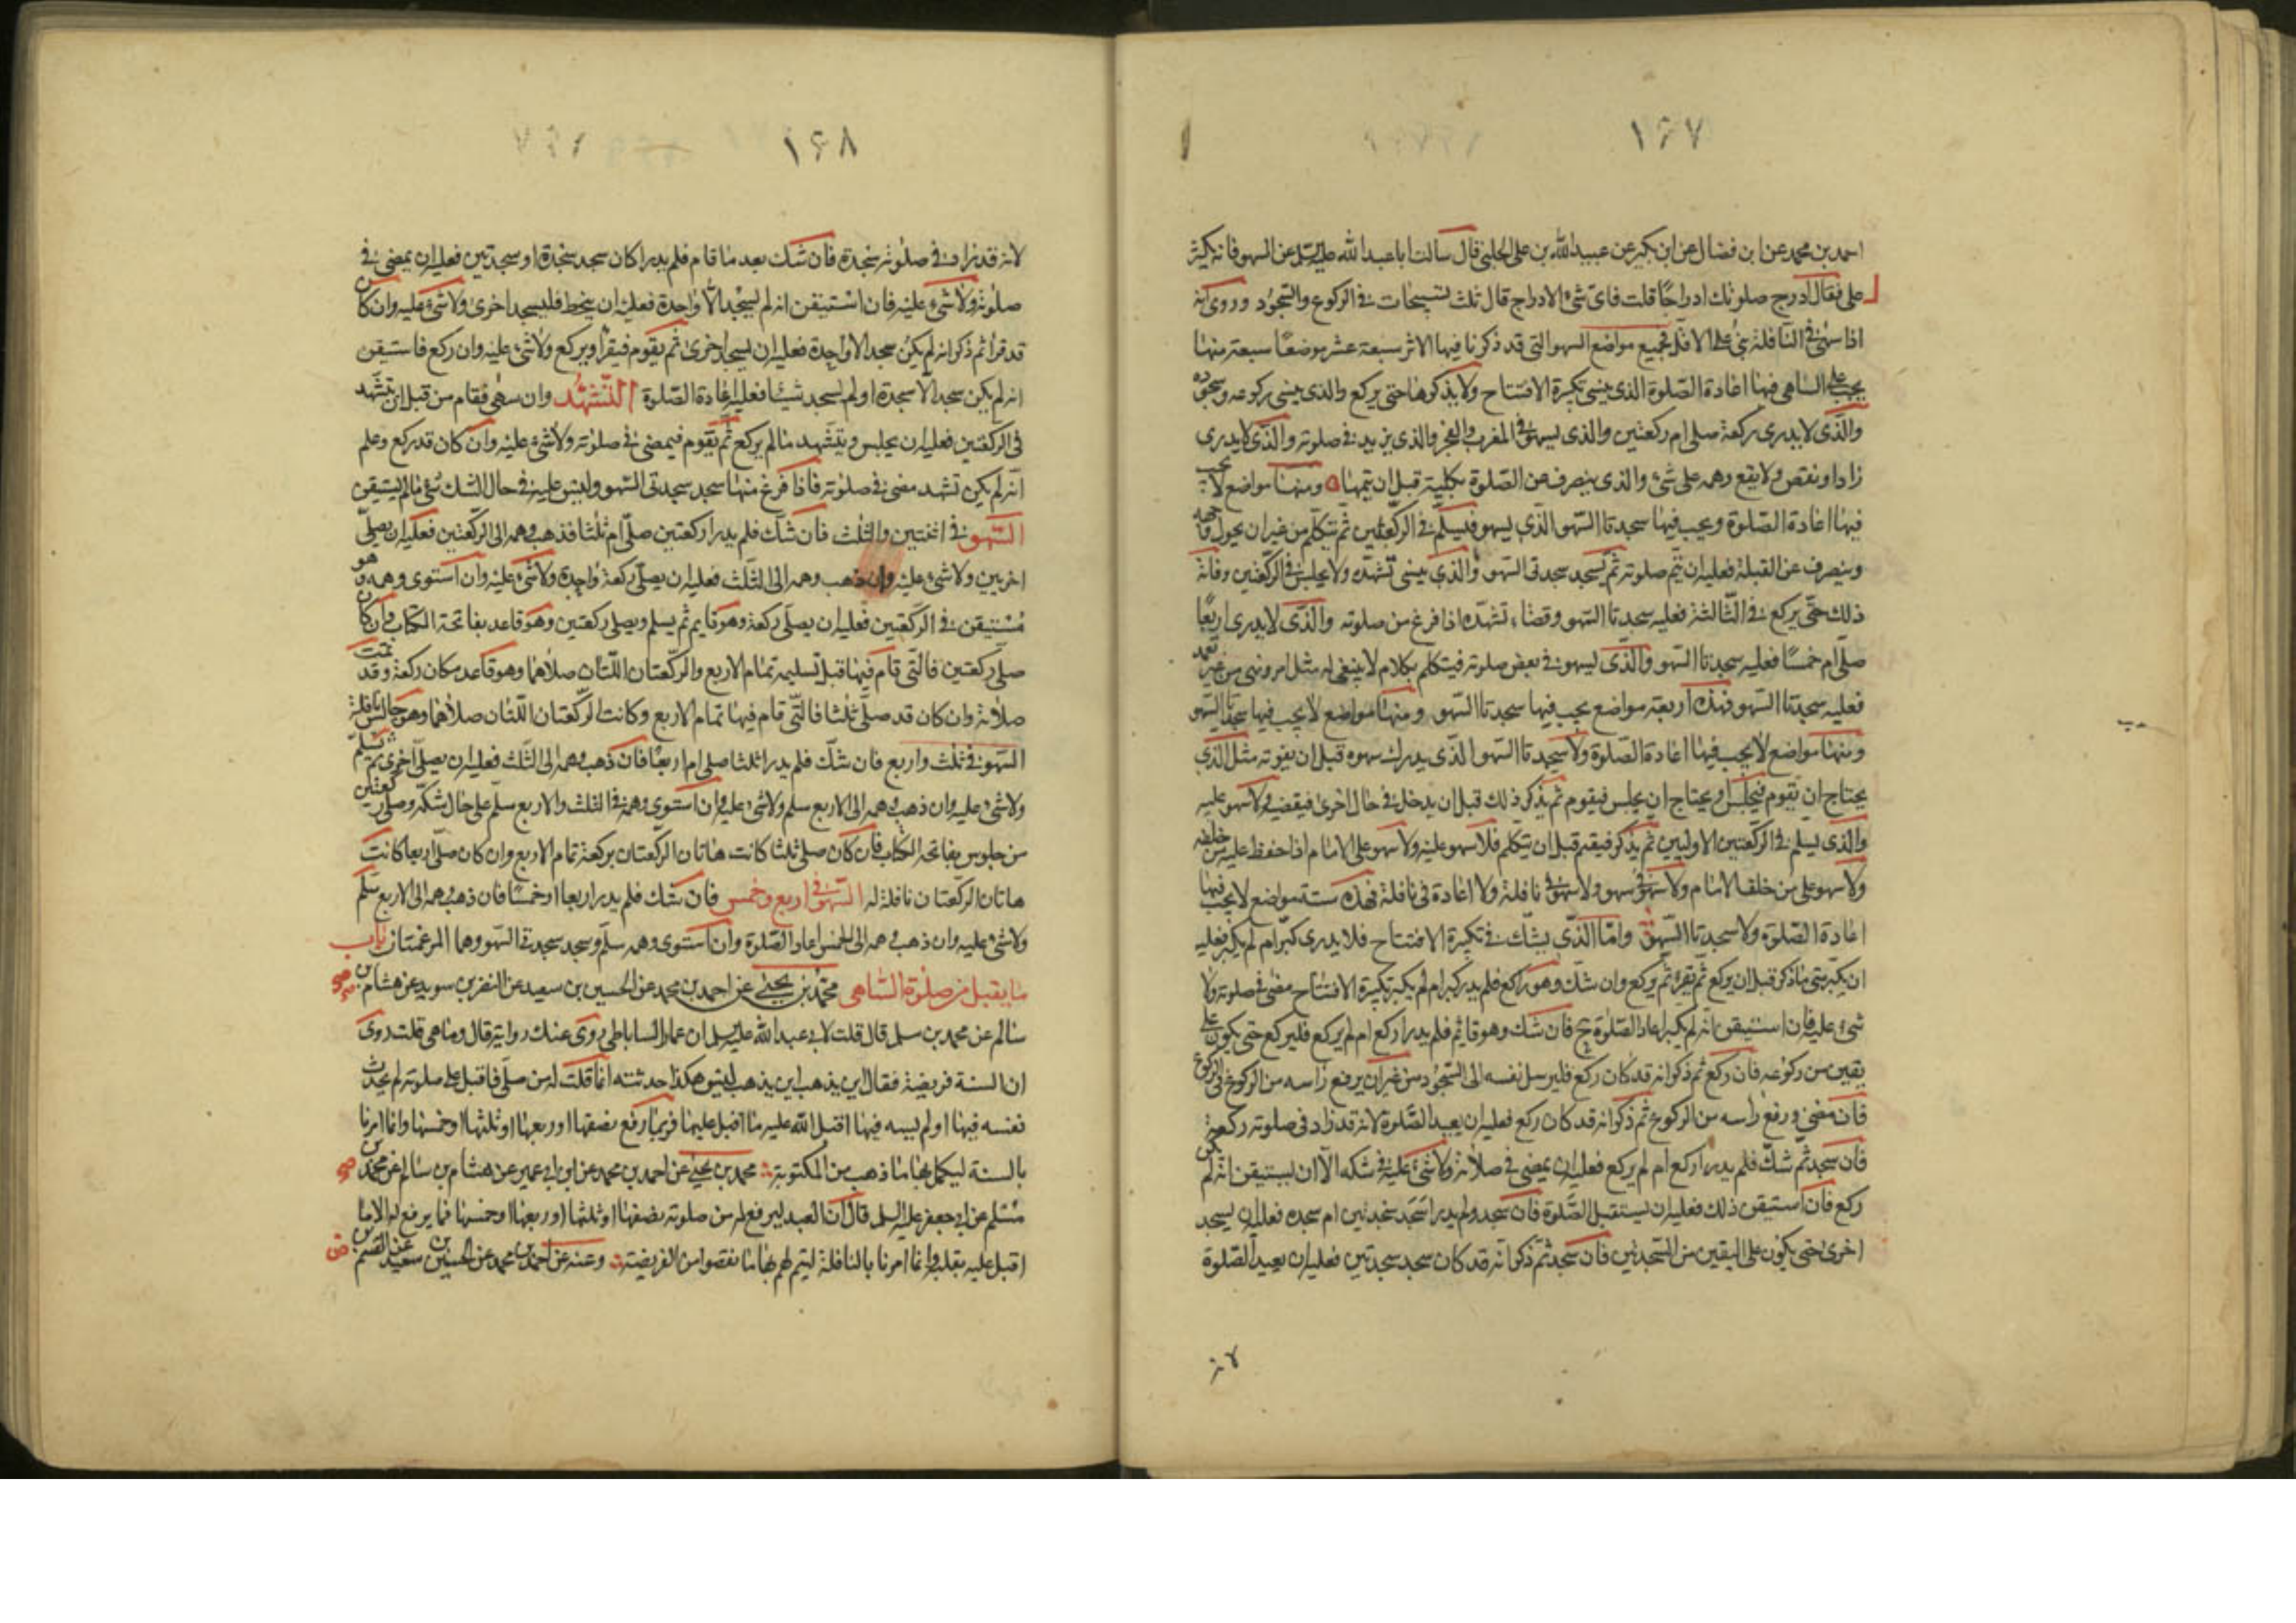 ۱۶۷
احمد بن محمد عن ابن فضال عن ابن بكير عن عبيد الله بن على الحلبى قال سالت ابا عبد الله عليه السلم عن السهو فانه يكثر
على فقال ادرج صلوتك ادراجًا قلت فاى شئ الادراج قال ثلث تسبيحات فى الركوع والسجود وروى انه
اذا سهى فى النافلة بنى على الاقل فجميع مواضع السهو التى قد ذكرنا فيها الاثر سبعة عشر موضعًا سبعة منها
يجب على الساهى فيها اعادة الصلوة الذى ينسى تكبيرة الافتتاح ولا يذكرها حتى يركع والذى ينسى ركوعه وسجوده
والذى لا يدرى ركعة صلى ام ركعتين والذى يسهو فى المغرب والفجر والذى يزيد فى صلوته والذى لا يدرى
زاد او نقص ولا يقع وهمه على شئ والذى ينصرف عن الصلوة بكليته قبل ان يتمها ومنها مواضع لا يجب
فيها اعادة الصلوة ويجب فيها سجدتا السهو الذى يسهو فيسلم فى الركعتين ثم يتكلم من غير ان يحول وجهه
وينصرف عن القبلة فعليه ان يتم صلوته ثم يسجد سجدتى السهو والذى ينسى تشهده ولا يجلس فى الركعتين وفاته
ذلك حتى يركع فى الثالثة فعليه سجدتا السهو وقضاء تشهده اذا فرغ من صلوته والذى لا يدرى اربعًا
صلى ام خمسًا فعليه سجدتا السهو والذى يسهو فى بعض صلوته فيتكلم بكلام لا ينبغى له مثل امر ونهى من غير تعمد
فعليه سجدتا السهو فهذه اربعة مواضع يجب فيها سجدتا السهو ومنها مواضع لا يجب فيها سجدتا السهو
ومنها مواضع لا يجب فيها اعادة الصلوة ولا سجدتا السهو الذى يدرك سهوه قبل ان يفوته مثل الذى
يحتاج ان يقوم فيجلس او يحتاج ان يجلس فيقوم ثم يذكر ذلك قبل ان يدخل فى حال اخرى فيقضيه لا سهو عليه
والذى يسلم فى الركعتين الاوليين ثم يذكر فيتم قبل ان يتكلم فلا سهو عليه ولا سهو على الامام اذا حفظ عليه من خلفه
ولا سهو على من خلف الامام ولا سهو فى سهو ولا سهو فى نافلة ولا اعادة فى نافلة فهذه ستة مواضع لا يجب فيها
اعادة الصلوة ولا سجدتا السهو واما الذى يشك فى تكبيرة الافتتاح فلا يدرى كبر ام لم يكبر فعليه
ان يكبر متى ما ذكر قبل ان يركع ثم يقرء ثم يركع وان شك وهو راكع فلم يدر كبر ام لم يكبر تكبيرة الافتتاح مضى فى صلوته ولا
شئ عليه فان استيقن انه لم يكبر اعاد الصلوة ح فان شك وهو قائم فلم يدر اركع ام لم يركع فليركع حتى يكون على
يقين من ركوعه فان ركع ثم ذكر انه قد كان ركع فليرسل نفسه الى السجود من غير ان يرفع راسه من الركوع فى الركوع
فان مضى ورفع راسه من الركوع ثم ذكر انه قد كان ركع فعليه ان يعيد الصلوة لانه قد زاد فى صلوته ركعة
فان سجد ثم شك فلم يدر اركع ام لم يركع فعليه ان يمضى فى صلاته ولا شئ عليه فى شكه الا ان يستيقن انه لم يكن
ركع فان استيقن ذلك فعليه ان يستقبل الصلوة فان سجد ولم يدر اسجد سجدتين ام سجدة فعليه ان يسجد
اخرى حتى يكون على اليقين من السجدتين فان سجد ثم ذكر انه قد كان سجد سجدتين فعليه ان يعيد الصلوة
۱۶۸
لانه قد زاد فى صلوته سجدة فان شك بعد ما قام فلم يدر اكان سجد سجدة او سجدتين فعليه ان يمضى فى
صلوته ولا شئ عليه فان استيقن انه لم يسجد الا واحدة فعليه ان ينحط فليسجد اخرى ولا شئ عليه وان كان
قد قرا ثم ذكر انه لم يكن سجد الا واحدة فعليه ان يسجد اخرى ثم يقوم فيقرا ويركع ولا شئ عليه وان ركع فاستيقن
انه لم يكن سجد الا سجدة او لم يسجد شيئا فعليه اعادة الصلوة التشهد وان سهى فقام من قبل ان يتشهد
فى الركعتين فعليه ان يجلس ويتشهد ما لم يركع ثم يقوم فيمضى فى صلوته ولا شئ عليه وان كان قد ركع وعلم
انه لم يكن تشهد مضى فى صلوته فاذا فرغ منها سجد سجدتى السهو وليس عليه فى حال الشك شئ ما لم يستيقن
السهو فى اثنتين والثلث فان شك فلم يدر اركعتين صلى ام ثلثا فذهب وهمه الى الركعتين فعليه ان يصلى
اخريين ولا شئ عليه وان ذهب وهمه الى الثلث فعليه ان يصلى ركعة واحدة ولا شئ عليه وان استوى وهمه وهو
مستيقن فى الركعتين فعليه ان يصلى ركعة وهو قايم ثم يسلم ويصلى ركعتين وهو قاعد بفاتحة الكتاب وان كان
صلى ركعتين فالتى قام فيها قبل تسليمه تمام الاربع والركعتان اللتان صلاهما وهو قاعد مكان ركعة وقد تمت
صلاته وان كان قد صلى ثلثا فالتى قام فيها تمام الاربع وكانت الركعتان اللتان صلاهما وهو جالس نافلة
السهو فى ثلث واربع فان شك فلم يدر اثلثا صلى ام اربعًا فان ذهب وهمه الى الثلث فعليه ان يصلى اخرى ثم يسلم
ولا شئ عليه وان ذهب وهمه الى الاربع سلم ولا شئ عليه وان استوى وهمه فى الثلث والاربع سلم على حال شكه وصلى ركعتين
من جلوس بفاتحة الكتاب فان كان صلى ثلثا كانت هاتان الركعتان بركعة تمام الاربع وان كان صلى اربعا كانت
هاتان الركعتان نافلة له السهو فى اربع وخمس فان شك فلم يدر اربعا او خمسًا فان ذهب وهمه الى الاربع سلم
ولا شئ عليه وان ذهب وهمه الى الخمس اعاد الصلوة وان استوى وهمه سلم وسجد سجدتى السهو وهما المرغمتان باب
ما يقبل من صلوة الساهى محمد بن يحيى عن احمد بن محمد عن الحسين بن سعيد عن النضر بن سويد عن هشام بن
سالم عن محمد بن مسلم قال قلت لابى عبد الله عليه السلم ان عمار الساباطى روى عنك رواية قال وما هى قلت روى
ان السنة فريضة فقال اين يذهب اين يذهب ليس هكذا حدثته انما قلت له من صلى فاقبل على صلوته لم يحدث
نفسه فيها او لم يسه فيها اقبل الله عليه ما اقبل عليها فربما رفع نصفها او ربعها او ثلثها او خمسها وانما امرنا
بالسنة ليكمل بها ما ذهب من المكتوبة محمد بن يحيى عن احمد بن محمد عن ابن ابى عمير عن هشام بن سالم عن محمد بن
مسلم عن ابى جعفر عليه السلم قال ان العبد ليرفع له من صلوته نصفها او ثلثها او ربعها او خمسها فما يرفع له الا ما
اقبل عليه بقلبه وانما امرنا بالنافلة ليتم لهم بها ما نقصوا من الفريضة وعنه عن احمد بن محمد عن الحسين بن سعيد عن القسم بن